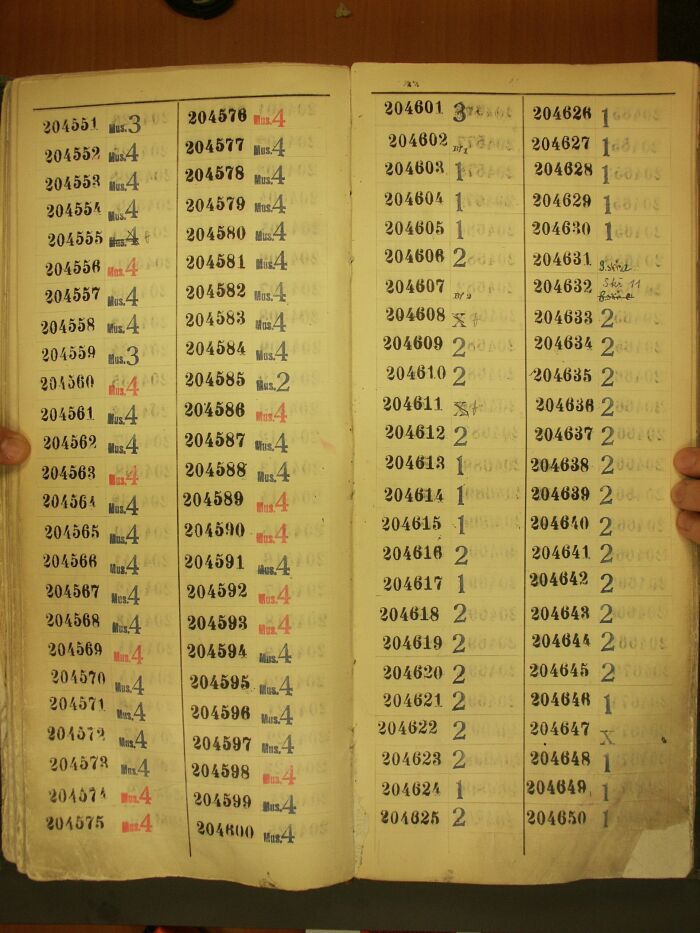 204551 Mus.3
204552 Mus.4
204553 Mus.4
204554 Mus.4
204555 Mus.4
204556 Mus.4
204557 Mus.4
204558 Mus.4
204559 Mus.3
204560 Mus.4
204561 Mus.4
204562 Mus.4
204563 Mus.4
204564 Mus.4
204565 Mus.4
204566 Mus.4
204567 Mus.4
204568 Mus.4
204569 Mus.4
204570 Mus.4
204571 Mus.4
204572 Mus.4
204573 Mus.4
204574 Mus.4
204575 Mus.4
204576 Mus.4
204577 Mus.4
204578 Mus.4
204579 Mus.4
204580 Mus.4
204581 Mus.4
204582 Mus.4
204583 Mus.4
204584 Mus.4
204585 Mus.2
204586 Mus.4
204587 Mus.4
204588 Mus.4
204589 Mus.4
204590 Mus.4
204591 Mus.4
204592 Mus.4
204593 Mus.4
204594 Mus.4
204595 Mus.4
204596 Mus.4
204597 Mus.4
204598 Mus.4
204599 Mus.4
204600 Mus.4
204601 3
204602
204603 1
204604 1
204605 1
204606 2
204607
204608 X †
204609 2
204610 2
204611 X †
204612 2
204613 1
204614 1
204615 1
204616 2
204617 1
204618 2
204619 2
204620 2
204621 2
204622 2
204623 2
204624 1
204625 2
204626 1
204627 1
204628 1
204629 1
204630 1
204631
204632 11
204633 2
204634 2
204635 2
204636 2
204637 2
204638 2
204639 2
204640 2
204641 2
204642 2
204643 2
204644 2
204645 2
204646 1
204647 X
204648 1
204649 1
204650 1